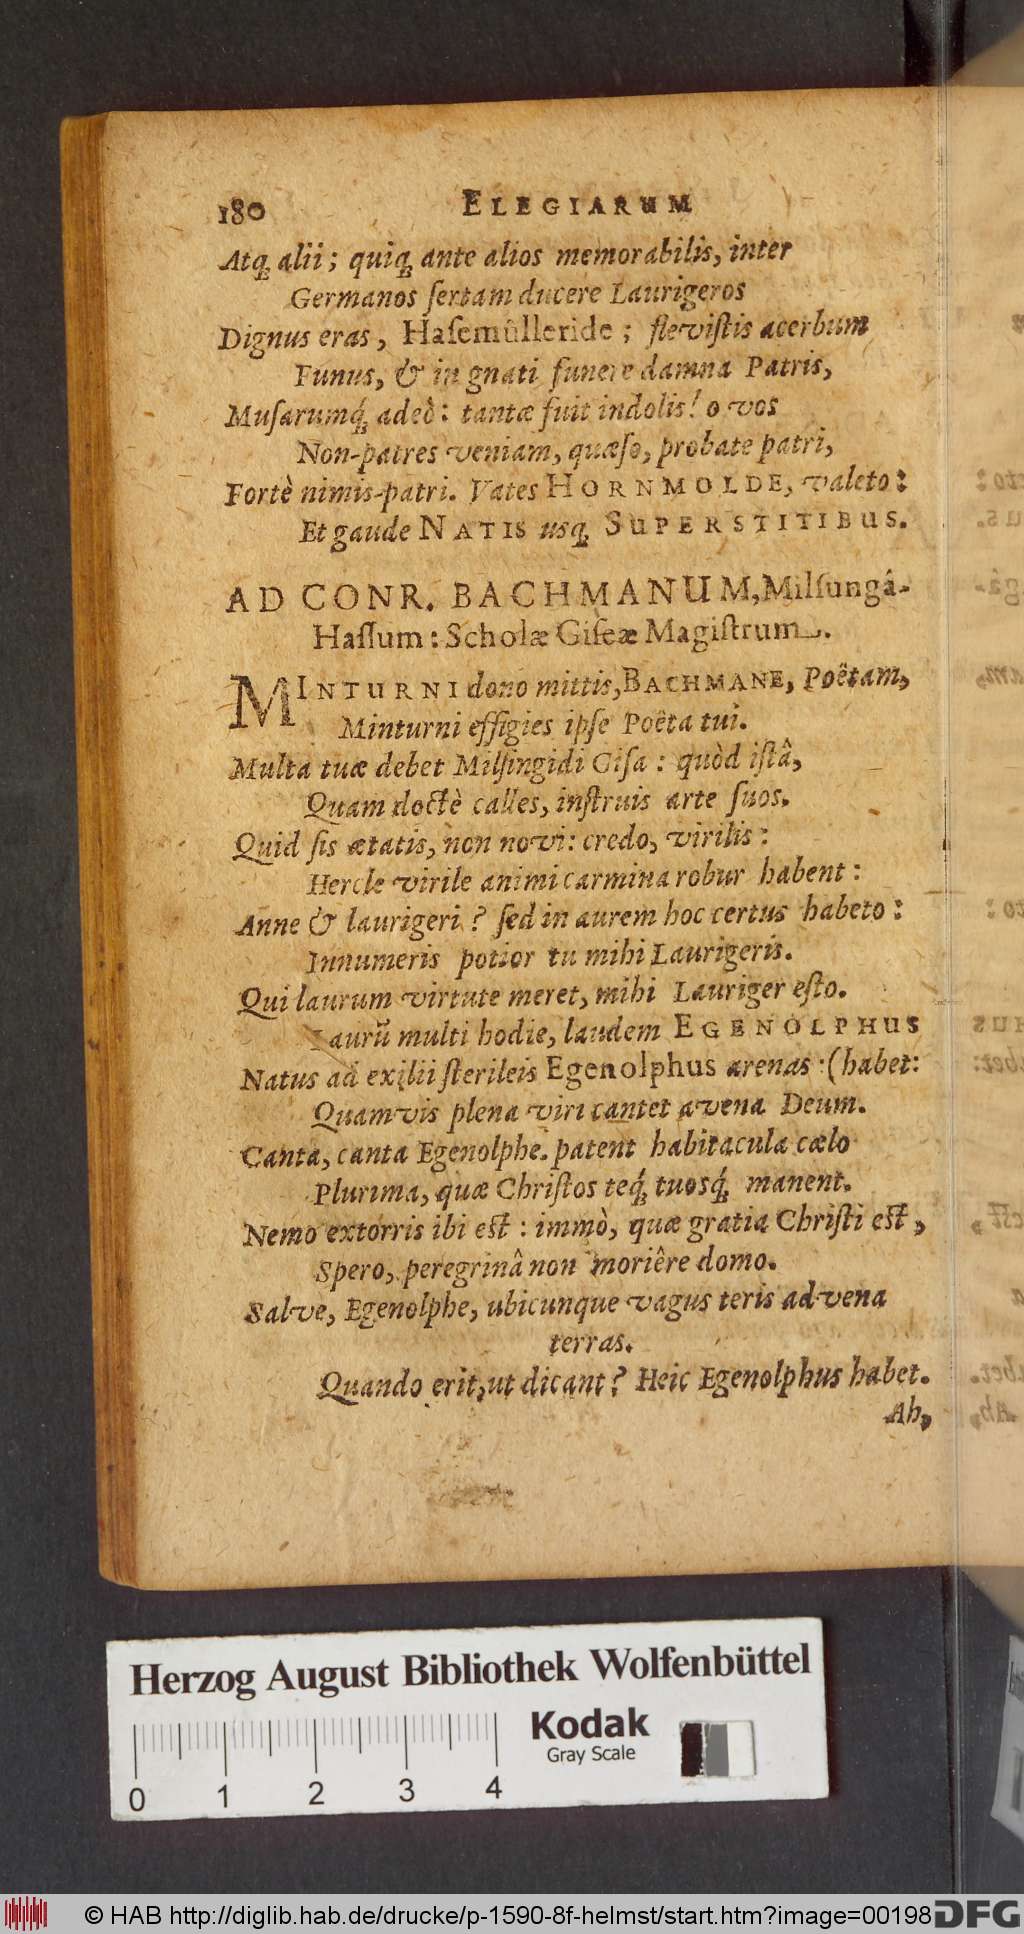 180 ELEGIARUM
Atq; alii; quiq; ante alios memorabilis, inter
Germanos ſertam ducere Laurigeros
Dignus eras, Haſemûlleride; fleviſtis acerbum
Funus, & in gnati funere damna Patris,
Muſarumq́; adeò: tantæ fuit indolis! o vos
Non-patres veniam, quæſo, probate patri,
Fortè nimis-patri. Vates HORNMOLDE, valeto:
Et gaude NATIS usq; SUPERSTITIBUS.
AD CONR. BACHMANUM, Milſungâ-
Haſſum: Scholæ Giſeæ Magiſtrum.
MINTURNI dono mittis, BACHMANE, Poêtam,
Minturni effigies ipſe Poêta tui.
Multa tuæ debet Milſingidi Giſa: quòd iſtâ,
Quam doctè calles, inſtruis arte ſuos.
Quid ſis ætatis, non novi: credo, virilis:
Hercle virile animi carmina robur habent:
Anne & laurigeri? ſed in aurem hoc certus habeto:
Innumeris potior tu mihi Laurigeris.
Qui laurum virtute meret, mihi Lauriger eſto.
Laurũ multi hodie, laudem EGENOLPHUS
Natus ad exilii ſterileis Egenolphus arenas: (habet:
Quamvis plena viri cantet avena Deum.
Canta, canta Egenolphe. patent habitacula cælo
Plurima, quæ Chriſtos teq́; tuosq́; manent.
Nemo extorris ibi eſt: immò, quæ gratia Chriſti eſt,
Spero, peregrinâ non moriêre domo.
Salve, Egenolphe, ubicunque vagus teris advena
terras.
Quando erit, ut dicant? Heic Egenolphus habet.
Ah,
Herzog August Bibliothek Wolfenbüttel
Kodak
Gray Scale
0 1 2 3 4
© HAB http://diglib.hab.de/drucke/p-1590-8f-helmst/start.htm?image=00198
DFG